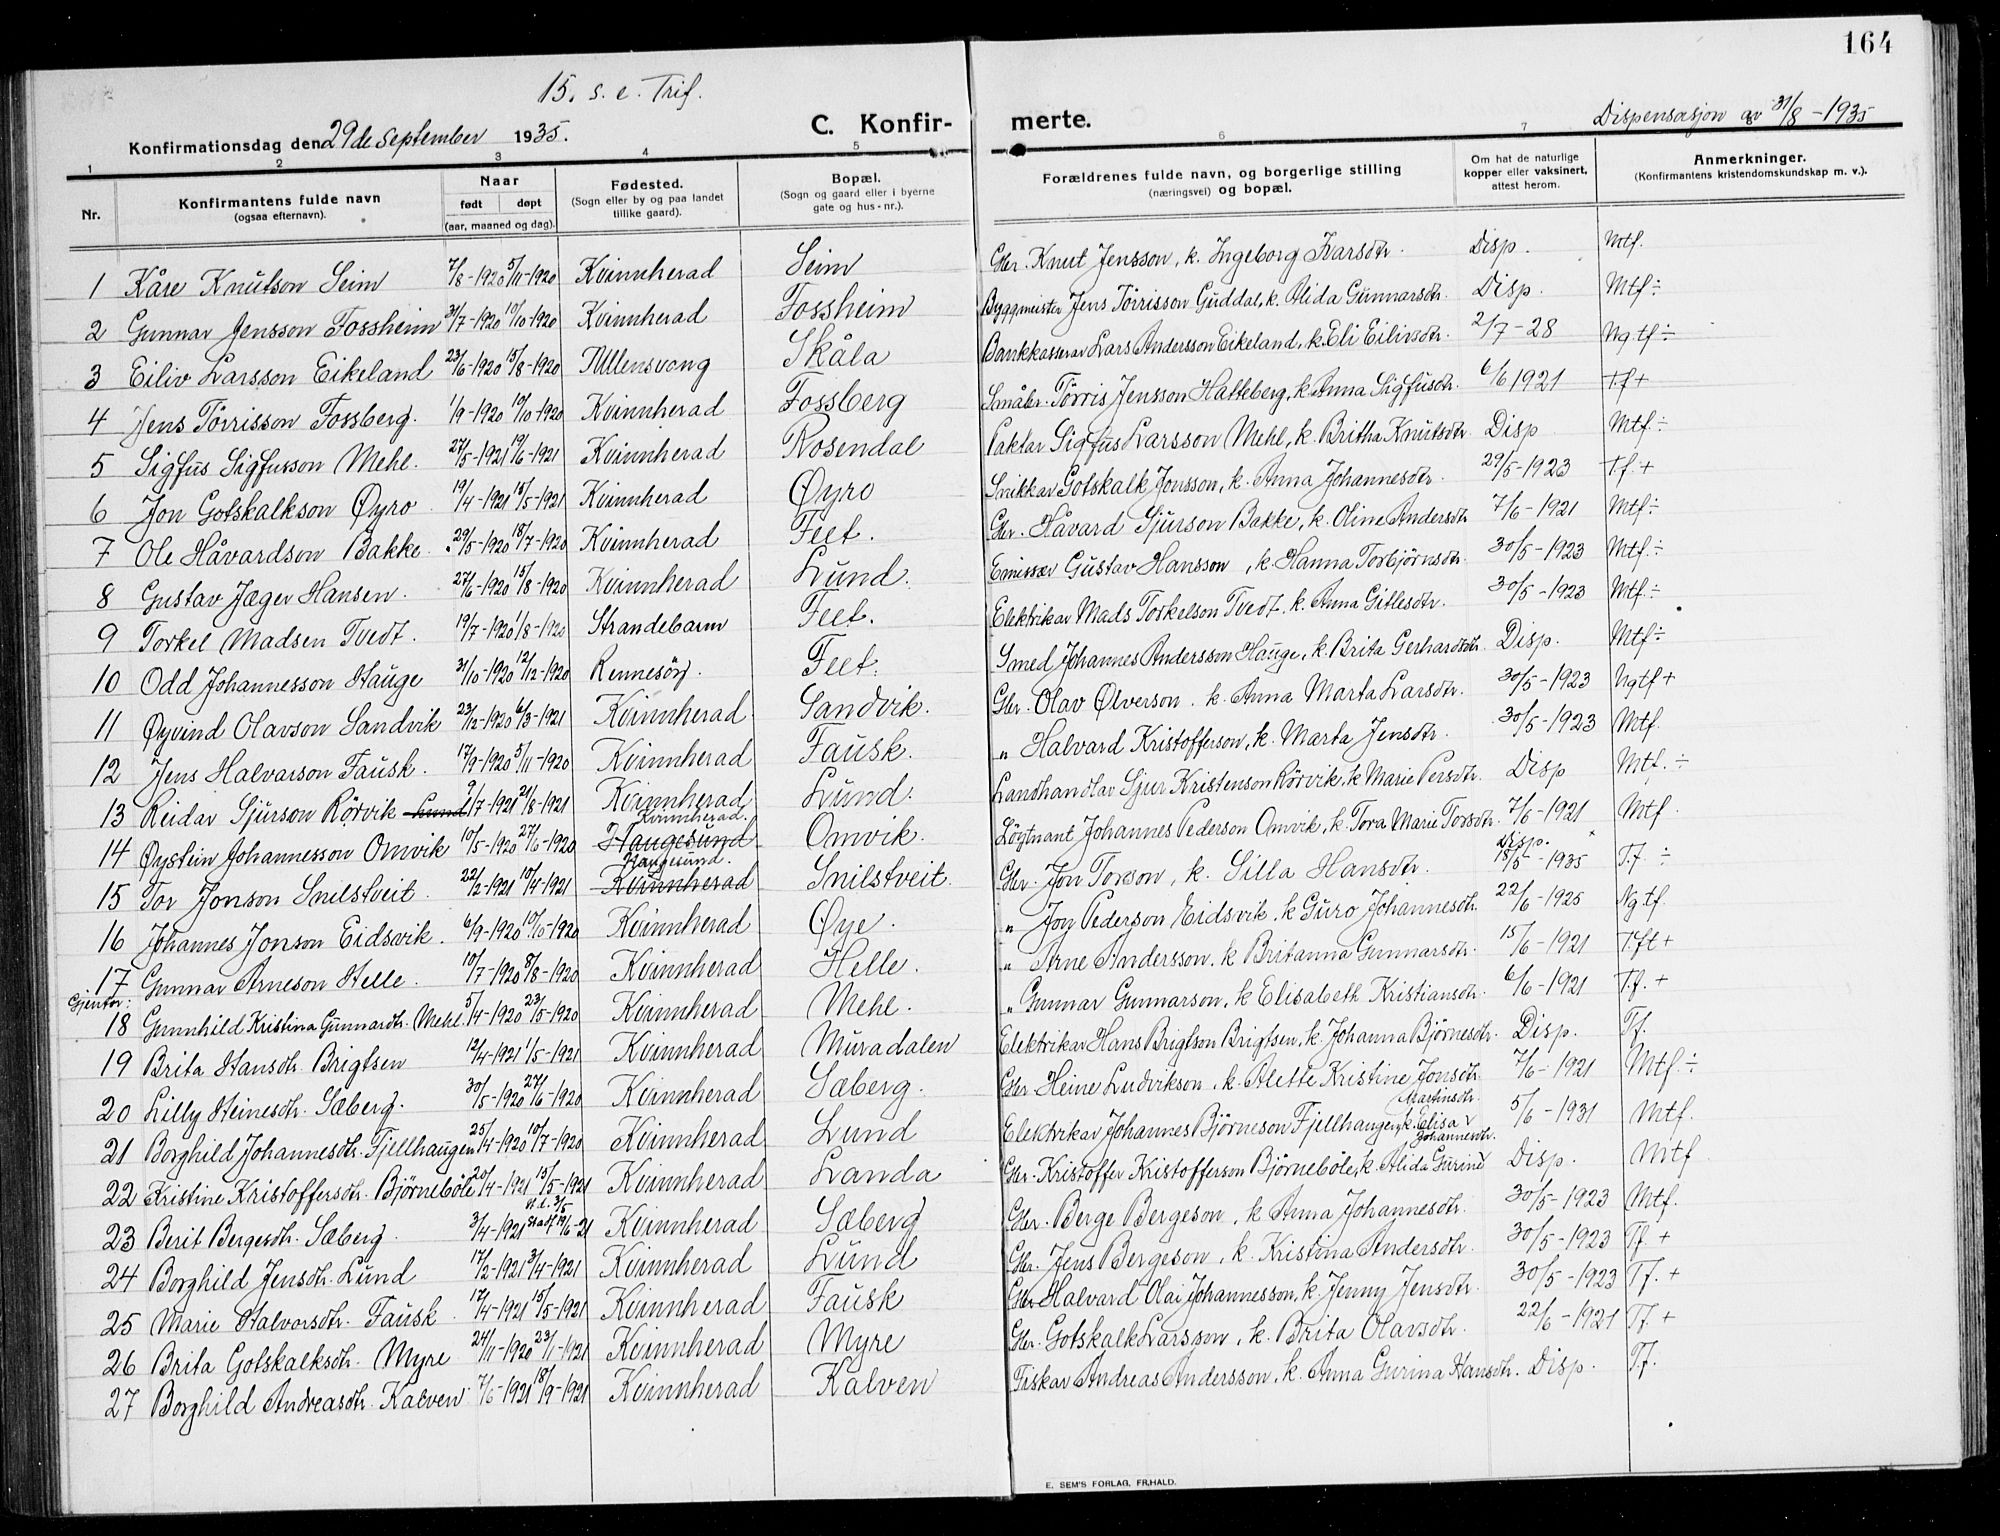 164
15. s. e. Trif.
Konfirmationsdag den 29de september 1935. C. Konfir- merte. Dispensasjon av 31/8-1935
1 2 3 4 5 6 7
Nr. Konfirmantens fulde navn (ogsaa efternavn). Naar født døpt (aar, maaned og dag). Fødested. (Sogn eller by og paa landet tillike gaard). Bopæl. (Sogn og gaard eller i byerne gate og hus-nr.). Forældrenes fulde navn, og borgerlige stilling (næringsvei) og bopæl. Om hat de naturlige kopper eller vaksinert, attest herom. Anmerkninger. (Konfirmantens kristendomskundskap m. v.).
1 Kåre Knutson Seim 7/8-1920 5/11-1920 Kvinnherad Seim Gbr. Knut Jensson, k. Ingeborg Ivarsdtr. Disp. Mtf.
2 Gunnar Jensson Fossheim 31/7-1920 10/10-1920 Kvinnherad Fossheim Byggmeister Jens Tørrisson Guddal, k. Alida Gunnarsdtr. Disp. Mtf÷
3 Eiliv Larsson Eikeland 23/6-1920 15/8-1920 Ullensvang Skåla Bankkasserar Lars Andersson Eikeland, k. Eli Eilivsdtr. 2/7-28 Ngtf÷
4 Jens Tørrisson Fossberg. 1/9-1920 10/10-1920 Kvinnherad Fossberg Småbr. Tørris Jensson Hatteberg, k. Anna Sigfusdtr. 6/6 1921 Tf+
5 Sigfus Sigfusson Mehl. 27/5-1921 19/6-1921 Kvinnherad Rosendal Paktar Sigfus Larsson Mehl, k. Britha Knutsdtr. Disp Mtf÷
6 Jon Gotskalkson Øyro 19/4-1921 15/5-1921 Kvinnherad Øyro Snikkar Gotskalk Jonsson, k. Anna Johannesdtr. 29/5-1923 Tf+
7 Ole Håvardson Bakke. 29/5-1920 18/7-1920 Kvinnherad Feet. Gbr. Håvard Sjurson Bakke, k. Oline Andersdtr 7/6-1921 Mtf÷
8 Gustav Jæger Hansen. 27/6-1920 15/8-1920 Kvinnherad Lund. Emissær Gustav Hansson, k. Hanna Torbjørnsdtr. 30/5-1923 Mtf÷
9 Torkel Madsen Tvedt. 19/7-1920 1/8-1920 Strandebarm Feet. Elektrikar Mads Torkelson Tvedt, k. Anna Gitlesdtr. 30/5-1923 Mtf÷
10 Odd Johannesson Hauge 31/10-1920 12/12-1920 Rennesøy. Feet. Smed Johannes Andersson Hauge, k. Brita Gerhardsdtr. Disp. Mtf÷
11 Øyvind Olavson Sandvik 23/12-1920 6/3-1921 Kvinnherad Sandvik. Gbr. Olav Ølverson, k. Anna Marta Larsdtr. 30/5-1923 Ngtf+
12 Jens Halvarson Fausk. 17/9-1920 5/11-1920 Kvinnherad Fausk. " Halvard Kristofferson, k. Marta Jensdtr. 30/5-1923 Mtf.
13 Reidar Sjurson Rørvik Lund 9/7-1921 21/8-1921 Kvinnherad Lund. Landhandlar Sjur Kristenson Rørvik, k. Marie Persdtr. Disp Mtf.÷
14 Øystein Johannesson Omvik 10/5-1920 27/6-1920 Haugesund Kvinnherad. Omvik. Løytnant Johannes Pederson Omvik, k. Tora Marie Torsdtr. 7/6-1921 Mtf.
15 Tor Jonson Snilstveit. 22/2-1921 10/4-1921 Kvinnherad Haugesund. Snilstveit. Gbr. Jon Torson, k. Silla Hansdtr. Disp. 15/5-1935 T.f÷
16 Johannes Jonson Eidsvik. 6/9-1920 10/10-1920 Kvinnherad Øye. " Jon Pederson Eidsvik, k. Guro Johannesdtr. 22/6-1925 Ngtf.
17 Gunnar Arneson Helle. 10/7-1920 8/8-1920 Kvinnherad Helle. " Arne Andersson, k. Britanna Gunnarsdtr. 15/6-1921 Tft+
Gjentor:
18 Gunnhild Kristina Gunnardtr. Mehl. 5/4-1920 23/5-1920 Kvinnherad Mehl. " Gunnar Gunnarson, k. Elisabeth Kristiansdtr. 6/6-1921 Tf.+
19 Brita Hansdtr. Brigtsen 12/4-1921 1/5-1921 Kvinnherad Muradalen Elektrikar Hans Brigtson Brigtsen, k. Johanna Bjørnesdtr. Disp. Tf.
20 Lilly Heinesdtr. Sæberg. 30/5-1920 27/6-1920 Kvinnherad Sæberg. Gbr. Heine Ludvikson, k. Alette Kristine Jonsdtr. 7/6-1921 Mtf÷
21 Borghild Johannesdtr. Fjellhaugen 25/4-1920 10/7-1920 Kvinnherad Lund Elektrikar Johannes Bjørneson Fjellhaugen, k. Elisa Martinsdtr. 5/6-1931 Mtf.
22 Kristine Kristoffersdtr. Bjørnebøle 20/4-1921 15/5-1921 Kvinnherad Landa Gbr. Kristoffer Kristofferson Bjørnebøle, k. Alida Gurine Johannesdtr. Disp. Mtf
23 Berit Bergesdtr. Sæberg. 3/4-1921 H.d. 3/5 Stadf 19/6-21 Kvinnherad Sæberg Gbr. Berge Bergeson, k. Anna Johannesdtr. 30/5-1923 Mtf.
24 Borghild Jensdtr. Lund 17/2-1921 3/4-1921 Kvinnherad Lund Gbr. Jens Bergeson, k. Kristina Andersdtr. 30/5-1923 Tf+
25 Marie Halvorsdtr. Fausk. 12/4-1921 15/5-1921 Kvinnherad Fausk Gbr. Halvard Olai Johannesson, k. Jenny Jensdtr. 30/5-1923 Tf.+
26 Brita Gotskalksdtr. Myre 24/11-1920 23/1-1921 Kvinnherad Myre Gbr. Gotskalk Larsson, k. Brita Olavsdtr. 22/6-1921 Tf.+
27 Borghild Andreasdtr. Kalven 7/6-1921 18/9-1921 Kvinnherad Kalven Fiskar Andreas Andersson, k. Anna Gurina Hansdtr. Disp. Tf.
E. SEM'S FORLAG, FR.HALD.